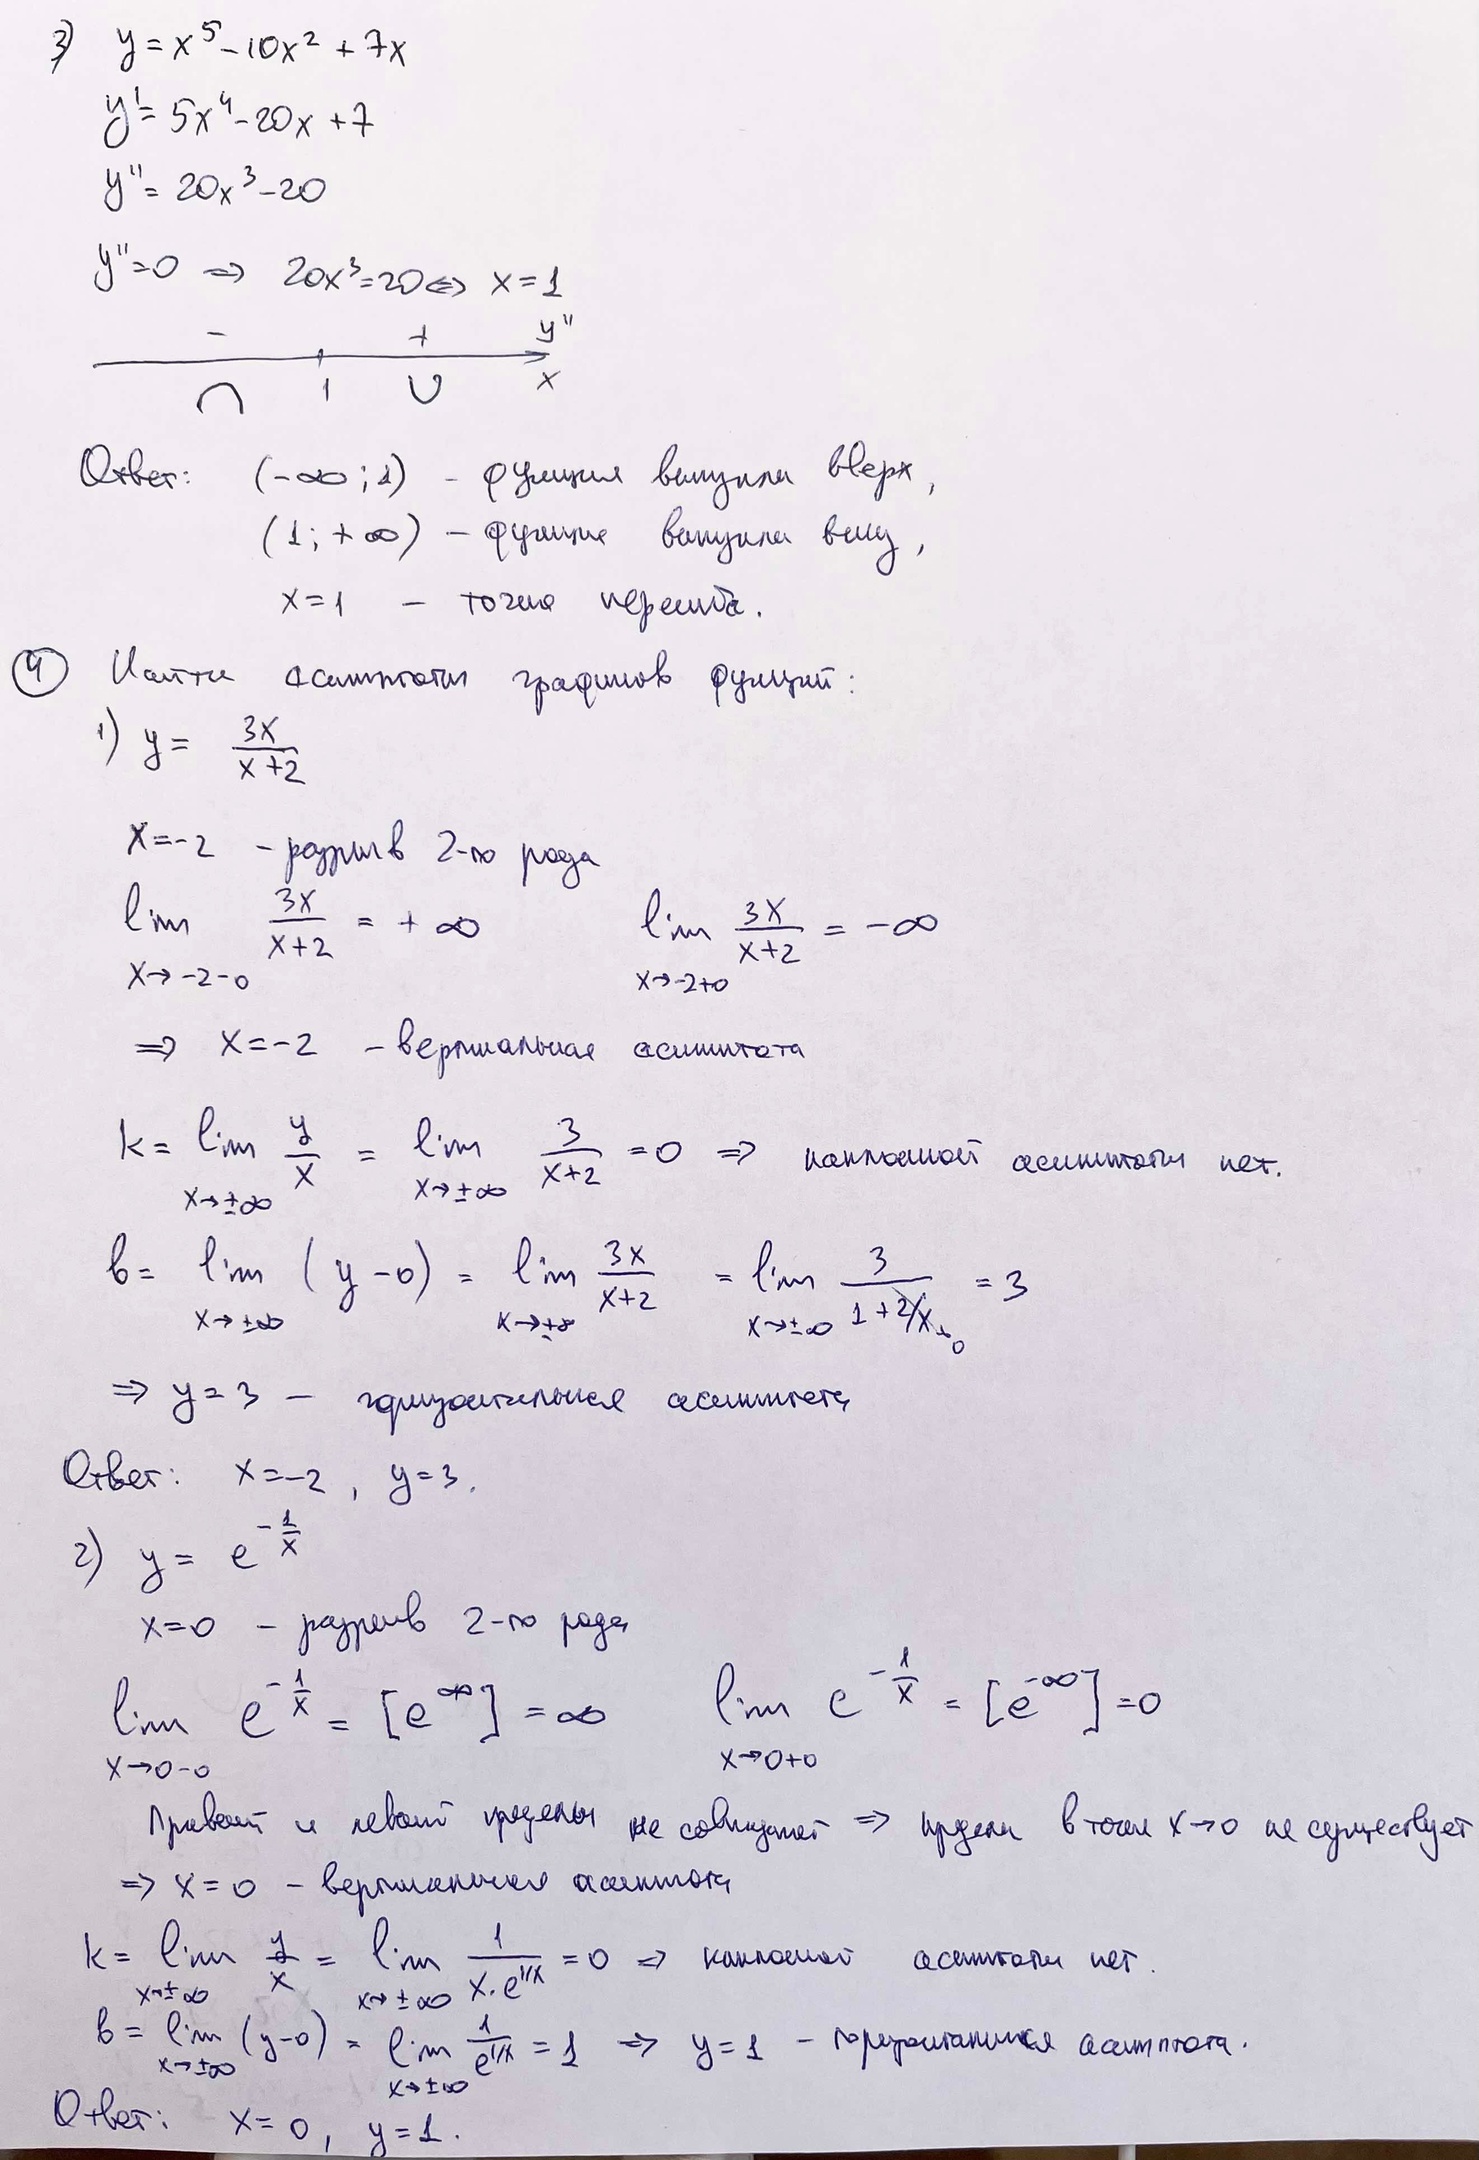 3) y = x⁵ - 10x² + 7x
y' = 5x⁴ - 20x + 7
y'' = 20x³ - 20
y'' = 0 ⇒ 20x³ = 20 ⇔ x = 1
- + y''
∩ 1 ∪ x
Ответ: (-∞; 1) - функция выпукла вверх,
(1; +∞) - функция выпукла вниз,
x = 1 - точка перегиба.
④ Найти асимптоты графиков функций:
1) y = 3x/(x+2)
x = -2 - разрыв 2-го рода
lim x→-2-0 3x/(x+2) = +∞ lim x→-2+0 3x/(x+2) = -∞
⇒ x = -2 - вертикальная асимптота
k = lim x→±∞ y/x = lim x→±∞ 3/(x+2) = 0 ⇒ наклонной асимптоты нет.
b = lim x→±∞ (y - 0) = lim x→±∞ 3x/(x+2) = lim x→±∞ 3/(1 + 2/x→0) = 3
⇒ y = 3 - горизонтальная асимптота
Ответ: x = -2, y = 3.
2) y = e^(-1/x)
x = 0 - разрыв 2-го рода
lim x→0-0 e^(-1/x) = [e^∞] = ∞ lim x→0+0 e^(-1/x) = [e^-∞] = 0
Правый и левый пределы не совпадают ⇒ предела в точке x→0 не существует
⇒ x = 0 - вертикальная асимптота
k = lim x→±∞ y/x = lim x→±∞ 1/(x·e^(1/x)) = 0 ⇒ наклонной асимптоты нет.
b = lim x→±∞ (y-0) = lim x→±∞ 1/e^(1/x) = 1 ⇒ y = 1 - горизонтальная асимптота.
Ответ: x = 0, y = 1.